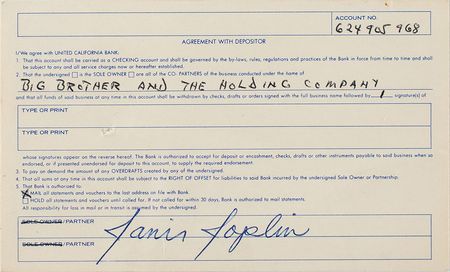 ACCOUNT NO.
624 905 968
AGREEMENT WITH DEPOSITOR
I/We agree with UNITED CALIFORNIA BANK:
1. That this account shall be carried as a CHECKING account and shall be governed by the by-laws, rules, regulations and practices of the Bank in force from time to time and shall
be subject to any and all service charges now or hereafter established.
2. That the undersigned is the SOLE OWNER are all of the CO-PARTNERS of the business conducted under the name of
BIG BROTHER AND THE HOLDING COMPANY
and that all funds of said business at any time in this account shall be withdrawn by checks, drafts or orders signed with the full business name followed by 1 signature(s) of
TYPE OR PRINT
TYPE OR PRINT
whose signatures appear on the reverse hereof. The Bank is authorized to accept for deposit or encashment, checks, drafts or other instruments payable to said business when so
endorsed, or if presented unendorsed for deposit to this account, to supply the required endorsement.
3. To pay on demand the amount of any OVERDRAFTS created by any of the undersigned.
4. That all sums at any time in this account shall be subject to the RIGHT OF OFFSET for liabilities to said Bank incurred by the undersigned Sole Owner or Partnership.
5. That Bank is authorized to
X MAIL all statements and vouchers to the last address on file with Bank.
HOLD all statements and vouchers until called for. If not called for within 30 days, Bank is authorized to mail statements.
All responsibility for loss in mail or in transit is assumed by the undersigned.
SOLE OWNER/PARTNER Janis Joplin
SOLE OWNER/PARTNER